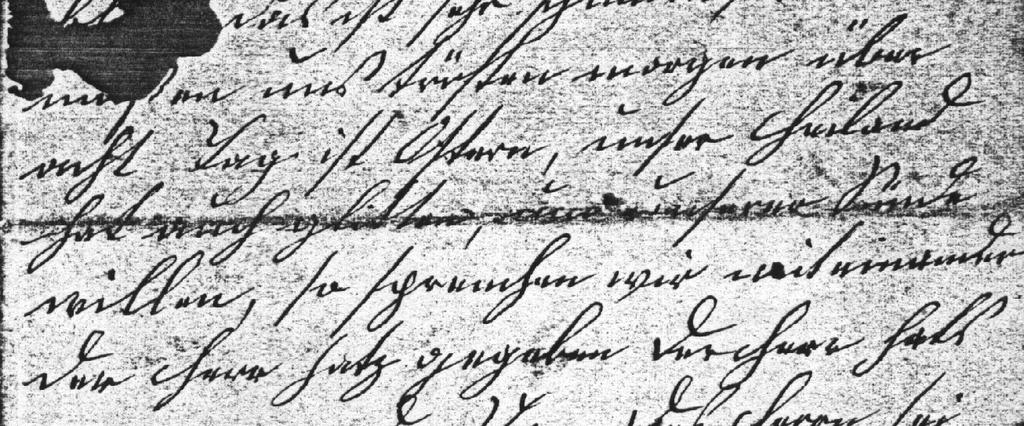 das ist sehr
müssen uns trösten morgen über
acht Tag ist Ostern, unser Heiland
hat auch glitten, um unserer Sünde
willen, so sprechen wir mit einander
der Herr hatz gegeben der Herr hats
des Herrn sei